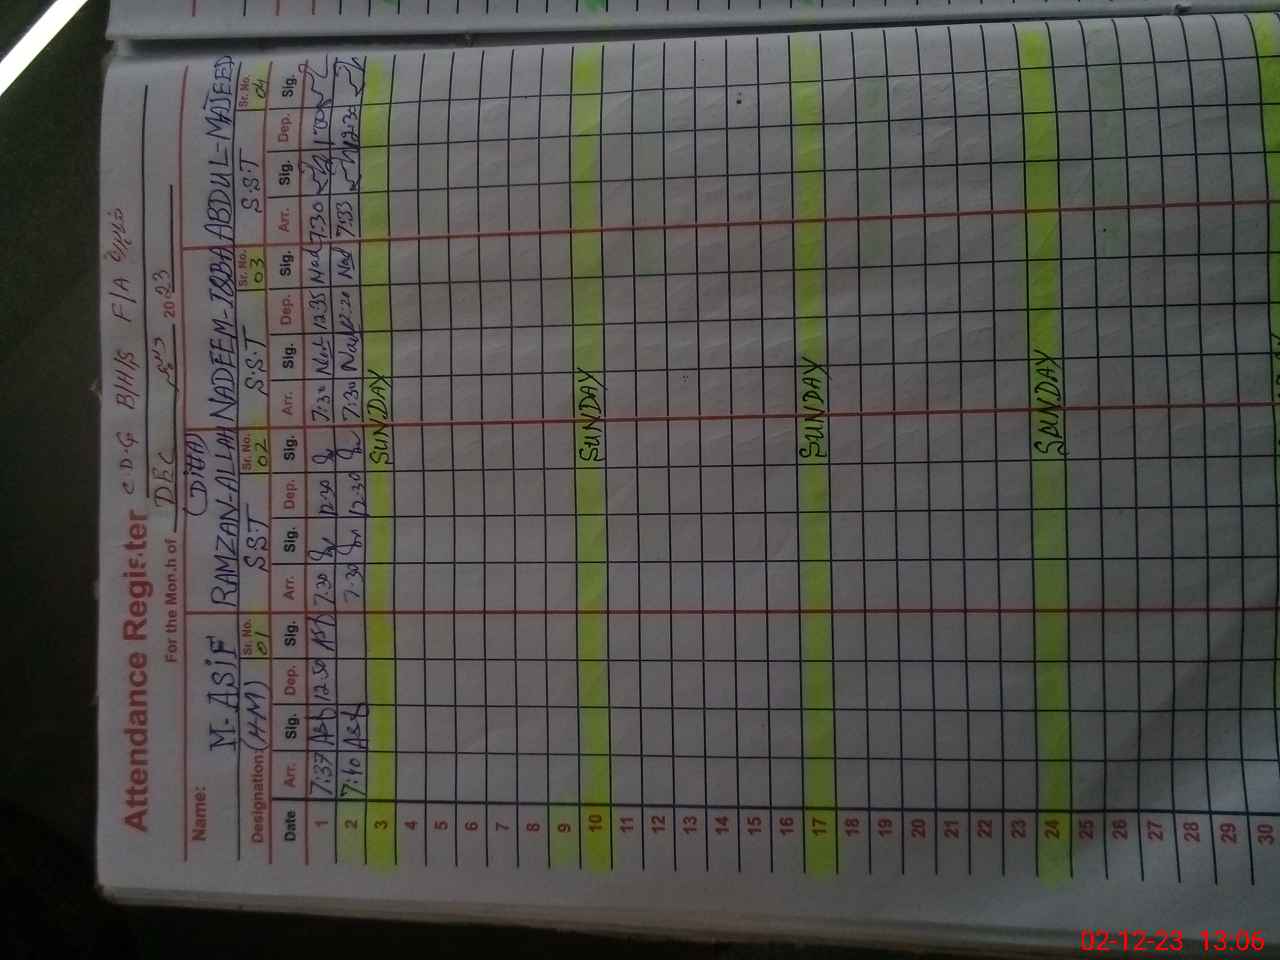 Attendance Register C.D.G B/H/S F/A
For the Month of DEC 2023
Name: M-ASiF RAMZAN-ALLAH (DiTTA) NADEEM-IQBAL ABDUL-MAJEED
Designation: (H-M) Sr. No. 01 S.S.T Sr. No. 02 S.S.T Sr. No. 03 S.S.T Sr. No. 04
Date Arr. Sig. Dep. Sig. Arr. Sig. Dep. Sig. Arr. Sig. Dep. Sig. Arr. Sig. Dep. Sig.
1 7:37 Asf 12:50 Asf 7:30 12:30 7:30 12:35 7:30 1:00
2 7:40 Asf 7:30 12:30 7:30 12:20 7:33 12:30
3 SUNDAY
4
5
6
7
8
9
10 SUNDAY
11
12
13
14
15
16
17 SUNDAY
18
19
20
21
22
23
24 SUNDAY
25
26
27
28
29
30
02-12-23 13:06